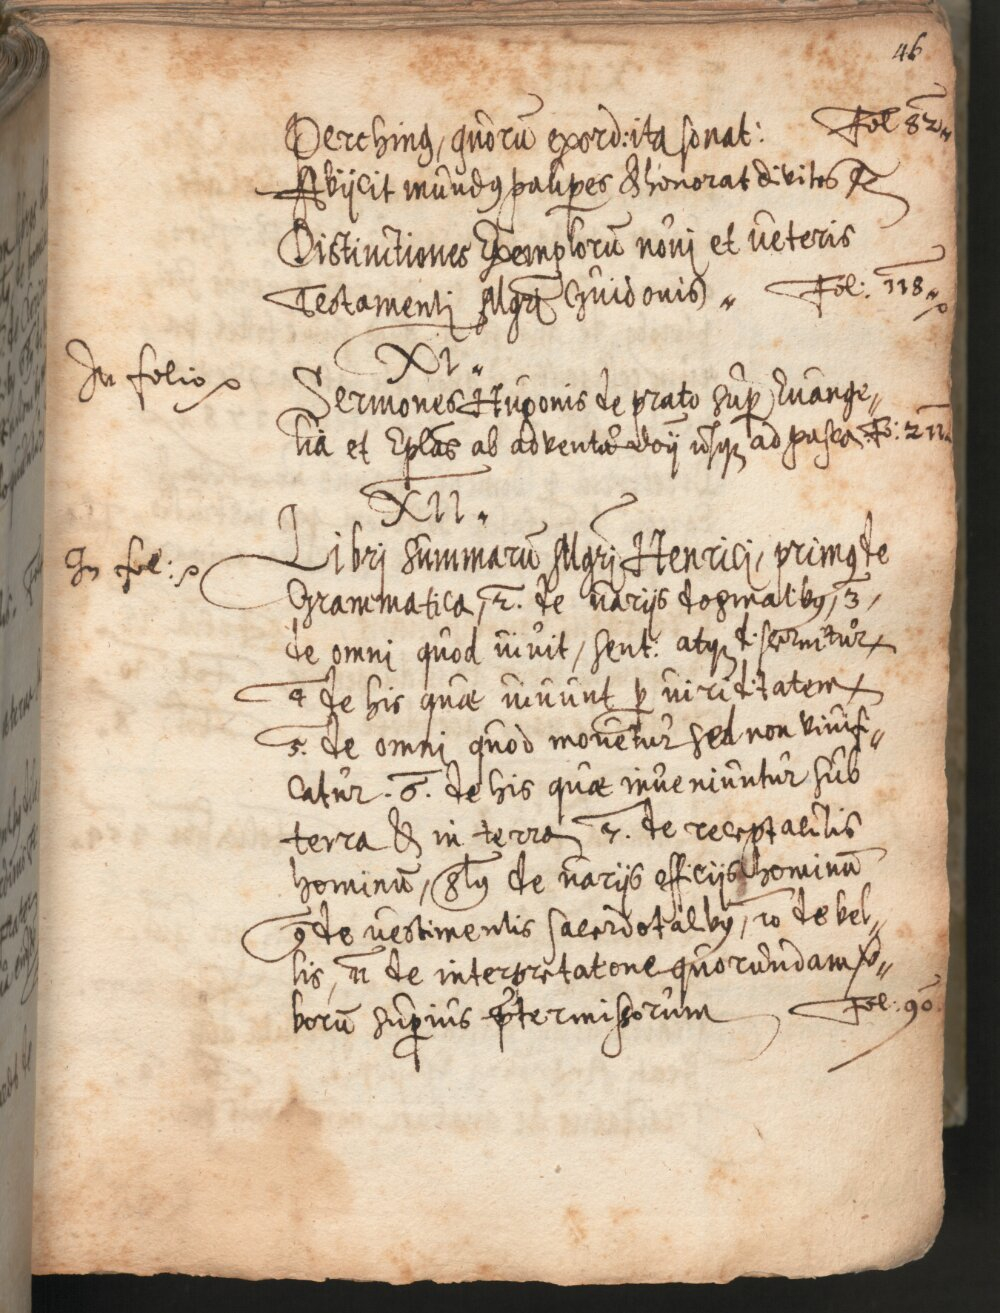 46
Perching, quorũ exord: ita sonat: Fol 82
Abijcit mundus paup̃es & honorat divites
Distinctiones Exemplorũ novi et veteris
Testamenti Mgri Guidonis) Fol: 118
XI.
In folio Sermones Hugonis de prato sup̃ Euange„
lia et Ep̃las ab adventu dõij usq̨ ad pasca. Fo: 211
XII.
In fol: Libri summarũ Mgri Henrici, primus de
Grammatica, 2. de varijs dogmatibus, 3,
de omni quod vivit, sent: atq̨ discernitur
4 de his quæ vivunt p viriditatem
5. de omni quod movetur sed non vivifi„
catur. 6. de his quæ inveniuntur sub
terra & in terra 7. de receptaculis
hominũ, 8us de varijs officijs hominũ
9 de vestimentis sacerdotalibus, 10 de bel„
lis, 11 de interpretatone quorundam v̓„
borũ superius p̃termissorum Fol: 90.